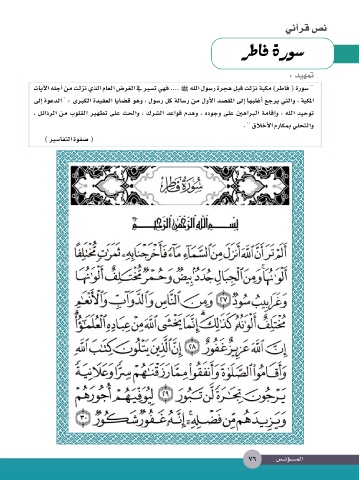 نص قرآني
سورة فاطر
تمهيد :
" سورة ( فاطر ) مكية نزلت قبل هجرة رسول الله ﷺ .... فهي تسير في الغرض العام الذي نزلت من أجله الآيات
المكية ، والتي يرجع أغلبها إلى المقصد الأول من رسالة كل رسول ، وهو قضايا العقيدة الكبرى : " الدعوة إلى
توحيد الله ، وإقامة البراهين على وجوده ، وهدم قواعد الشرك ، والحث على تطهير القلوب من الرذائل ،
والتحلي بمكارم الأخلاق " .
( صفوة التفاسير )
سورة فاطر
بِسْمِ اللَّهِ الرَّحْمَٰنِ الرَّحِيمِ
أَلَمْ تَرَ أَنَّ اللَّهَ أَنزَلَ مِنَ السَّمَاءِ مَاءً فَأَخْرَجْنَا بِهِ ثَمَرَاتٍ مُّخْتَلِفًا
أَلْوَانُهَا وَمِنَ الْجِبَالِ جُدَدٌ بِيضٌ وَحُمْرٌ مُّخْتَلِفٌ أَلْوَانُهَا
وَغَرَابِيبُ سُودٌ ٢٧ وَمِنَ النَّاسِ وَالدَّوَابِّ وَالْأَنْعَامِ
مُخْتَلِفٌ أَلْوَانُهُ كَذَٰلِكَ إِنَّمَا يَخْشَى اللَّهَ مِنْ عِبَادِهِ الْعُلَمَاءُ
إِنَّ اللَّهَ عَزِيزٌ غَفُورٌ ٢٨ إِنَّ الَّذِينَ يَتْلُونَ كِتَابَ اللَّهِ
وَأَقَامُوا الصَّلَاةَ وَأَنفَقُوا مِمَّا رَزَقْنَاهُمْ سِرًّا وَعَلَانِيَةً
يَرْجُونَ تِجَارَةً لَّن تَبُورَ ٢٩ لِيُوَفِّيَهُمْ أُجُورَهُمْ
وَيَزِيدَهُم مِّن فَضْلِهِ إِنَّهُ غَفُورٌ شَكُورٌ ٣٠
٧٦ المـــؤنــس